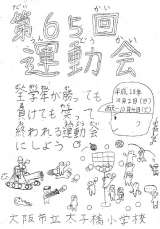 だい かい
第65回
うん どう かい
運動会
全学年が勝っても
負けても笑って
終われる運動会
にしよう
平成28年
大阪市立太子橋小学校